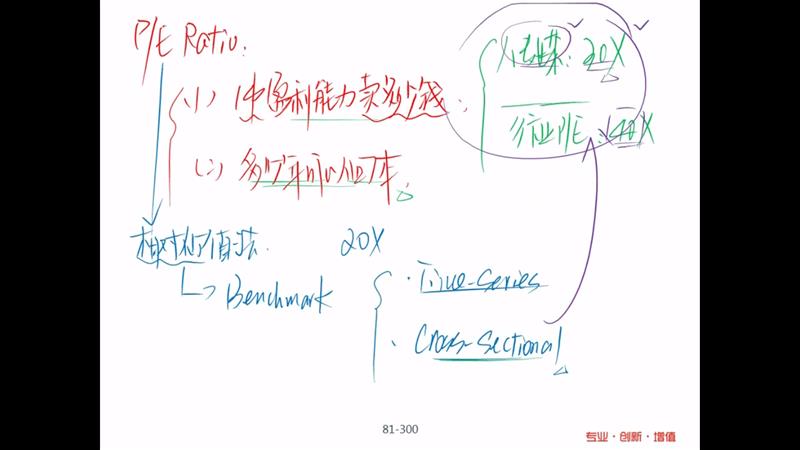 P/E Ratio.
(1) 1块盈利能力卖多少钱.
(二) 多少年可以回本.
传媒: 20X
行业P/E: 40X
相对估值法. 20X
Benchmark
· Time-series
· Cross-Sectional
81-300
专业·创新·增值